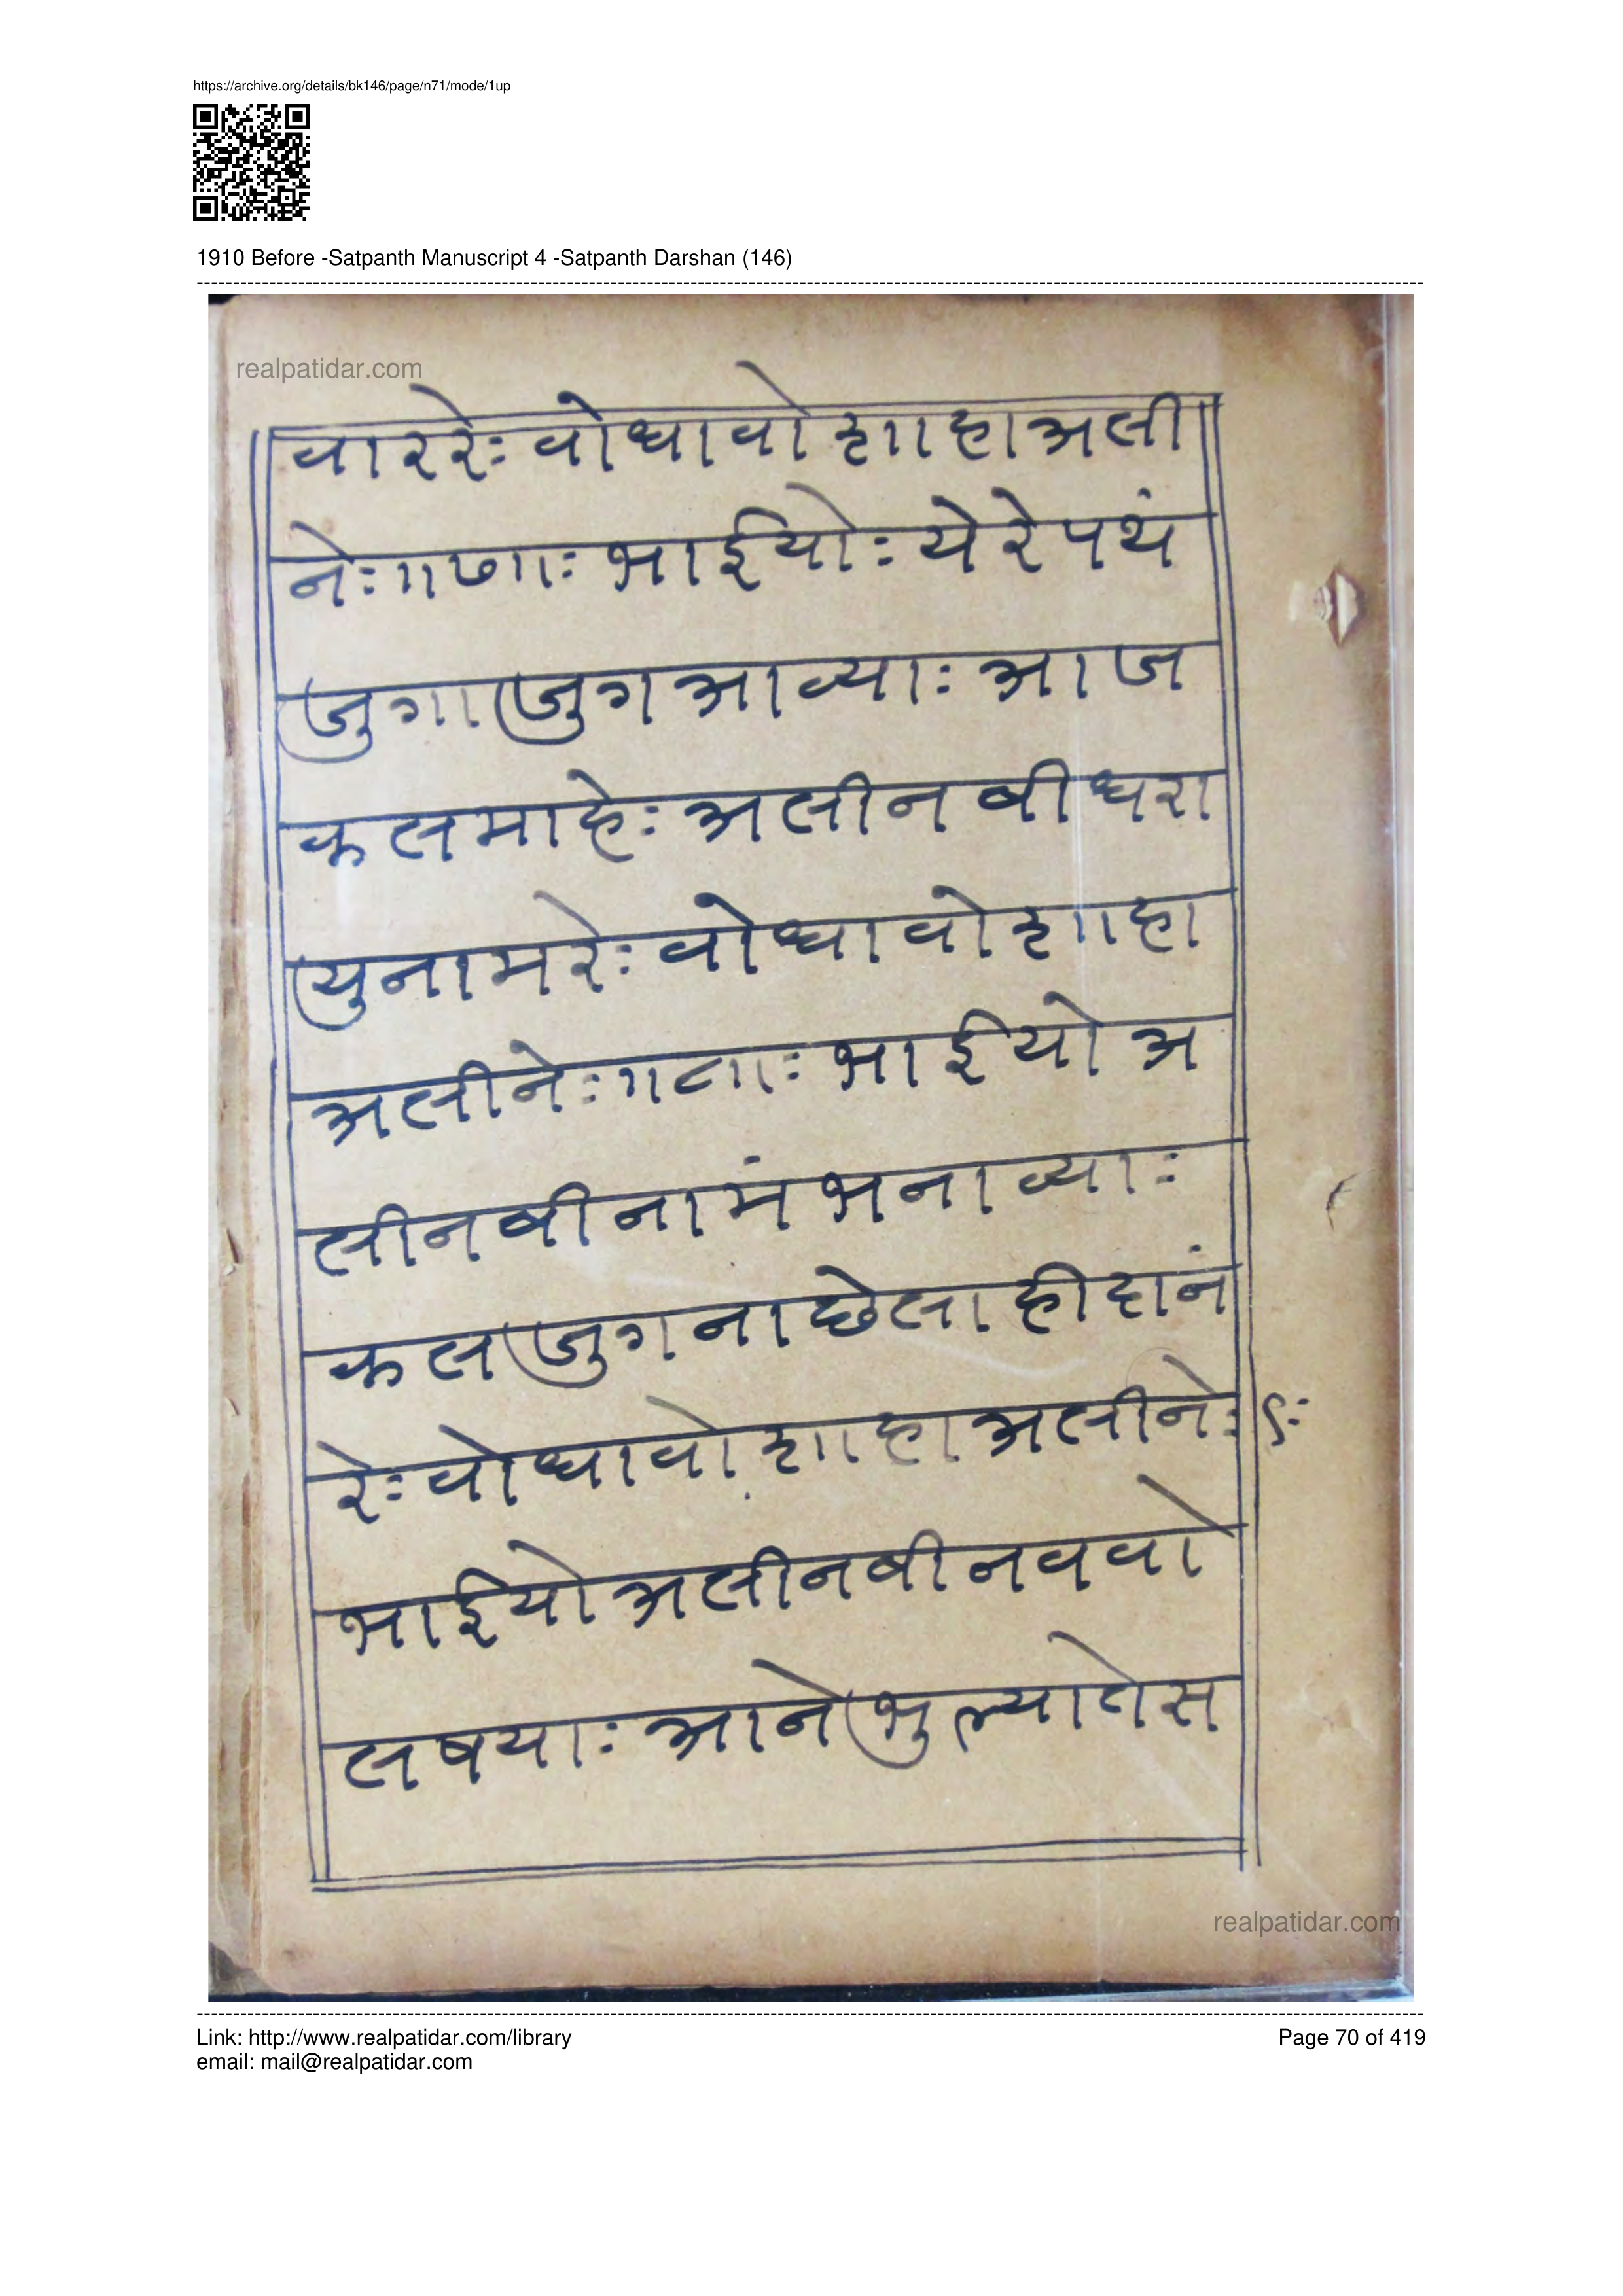 https://archive.org/details/bk146/page/n71/mode/1up
1910 Before -Satpanth Manuscript 4 -Satpanth Darshan (146)
realpatidar.com
वाररेः वोधावो शाहाअली
नेः॥७॥ः भाईयोः येरेपथं
जुगाजुगआव्याः आज
कलमाहेः अलीनबीधरा
युनामरेः वोधावोशाहा
अलीनेः॥८॥ः भाईयोअ
लीनबीनामंभनाव्याः
कलजुगनाछेलाहीदानं
रेः वोधावोशाहाअलीनेः ९ः
भाईयोअलीनबीनववो
लषयाः आनेभुल्यातेस
realpatidar.com
Link: http://www.realpatidar.com/library
Page 70 of 419
email: mail@realpatidar.com